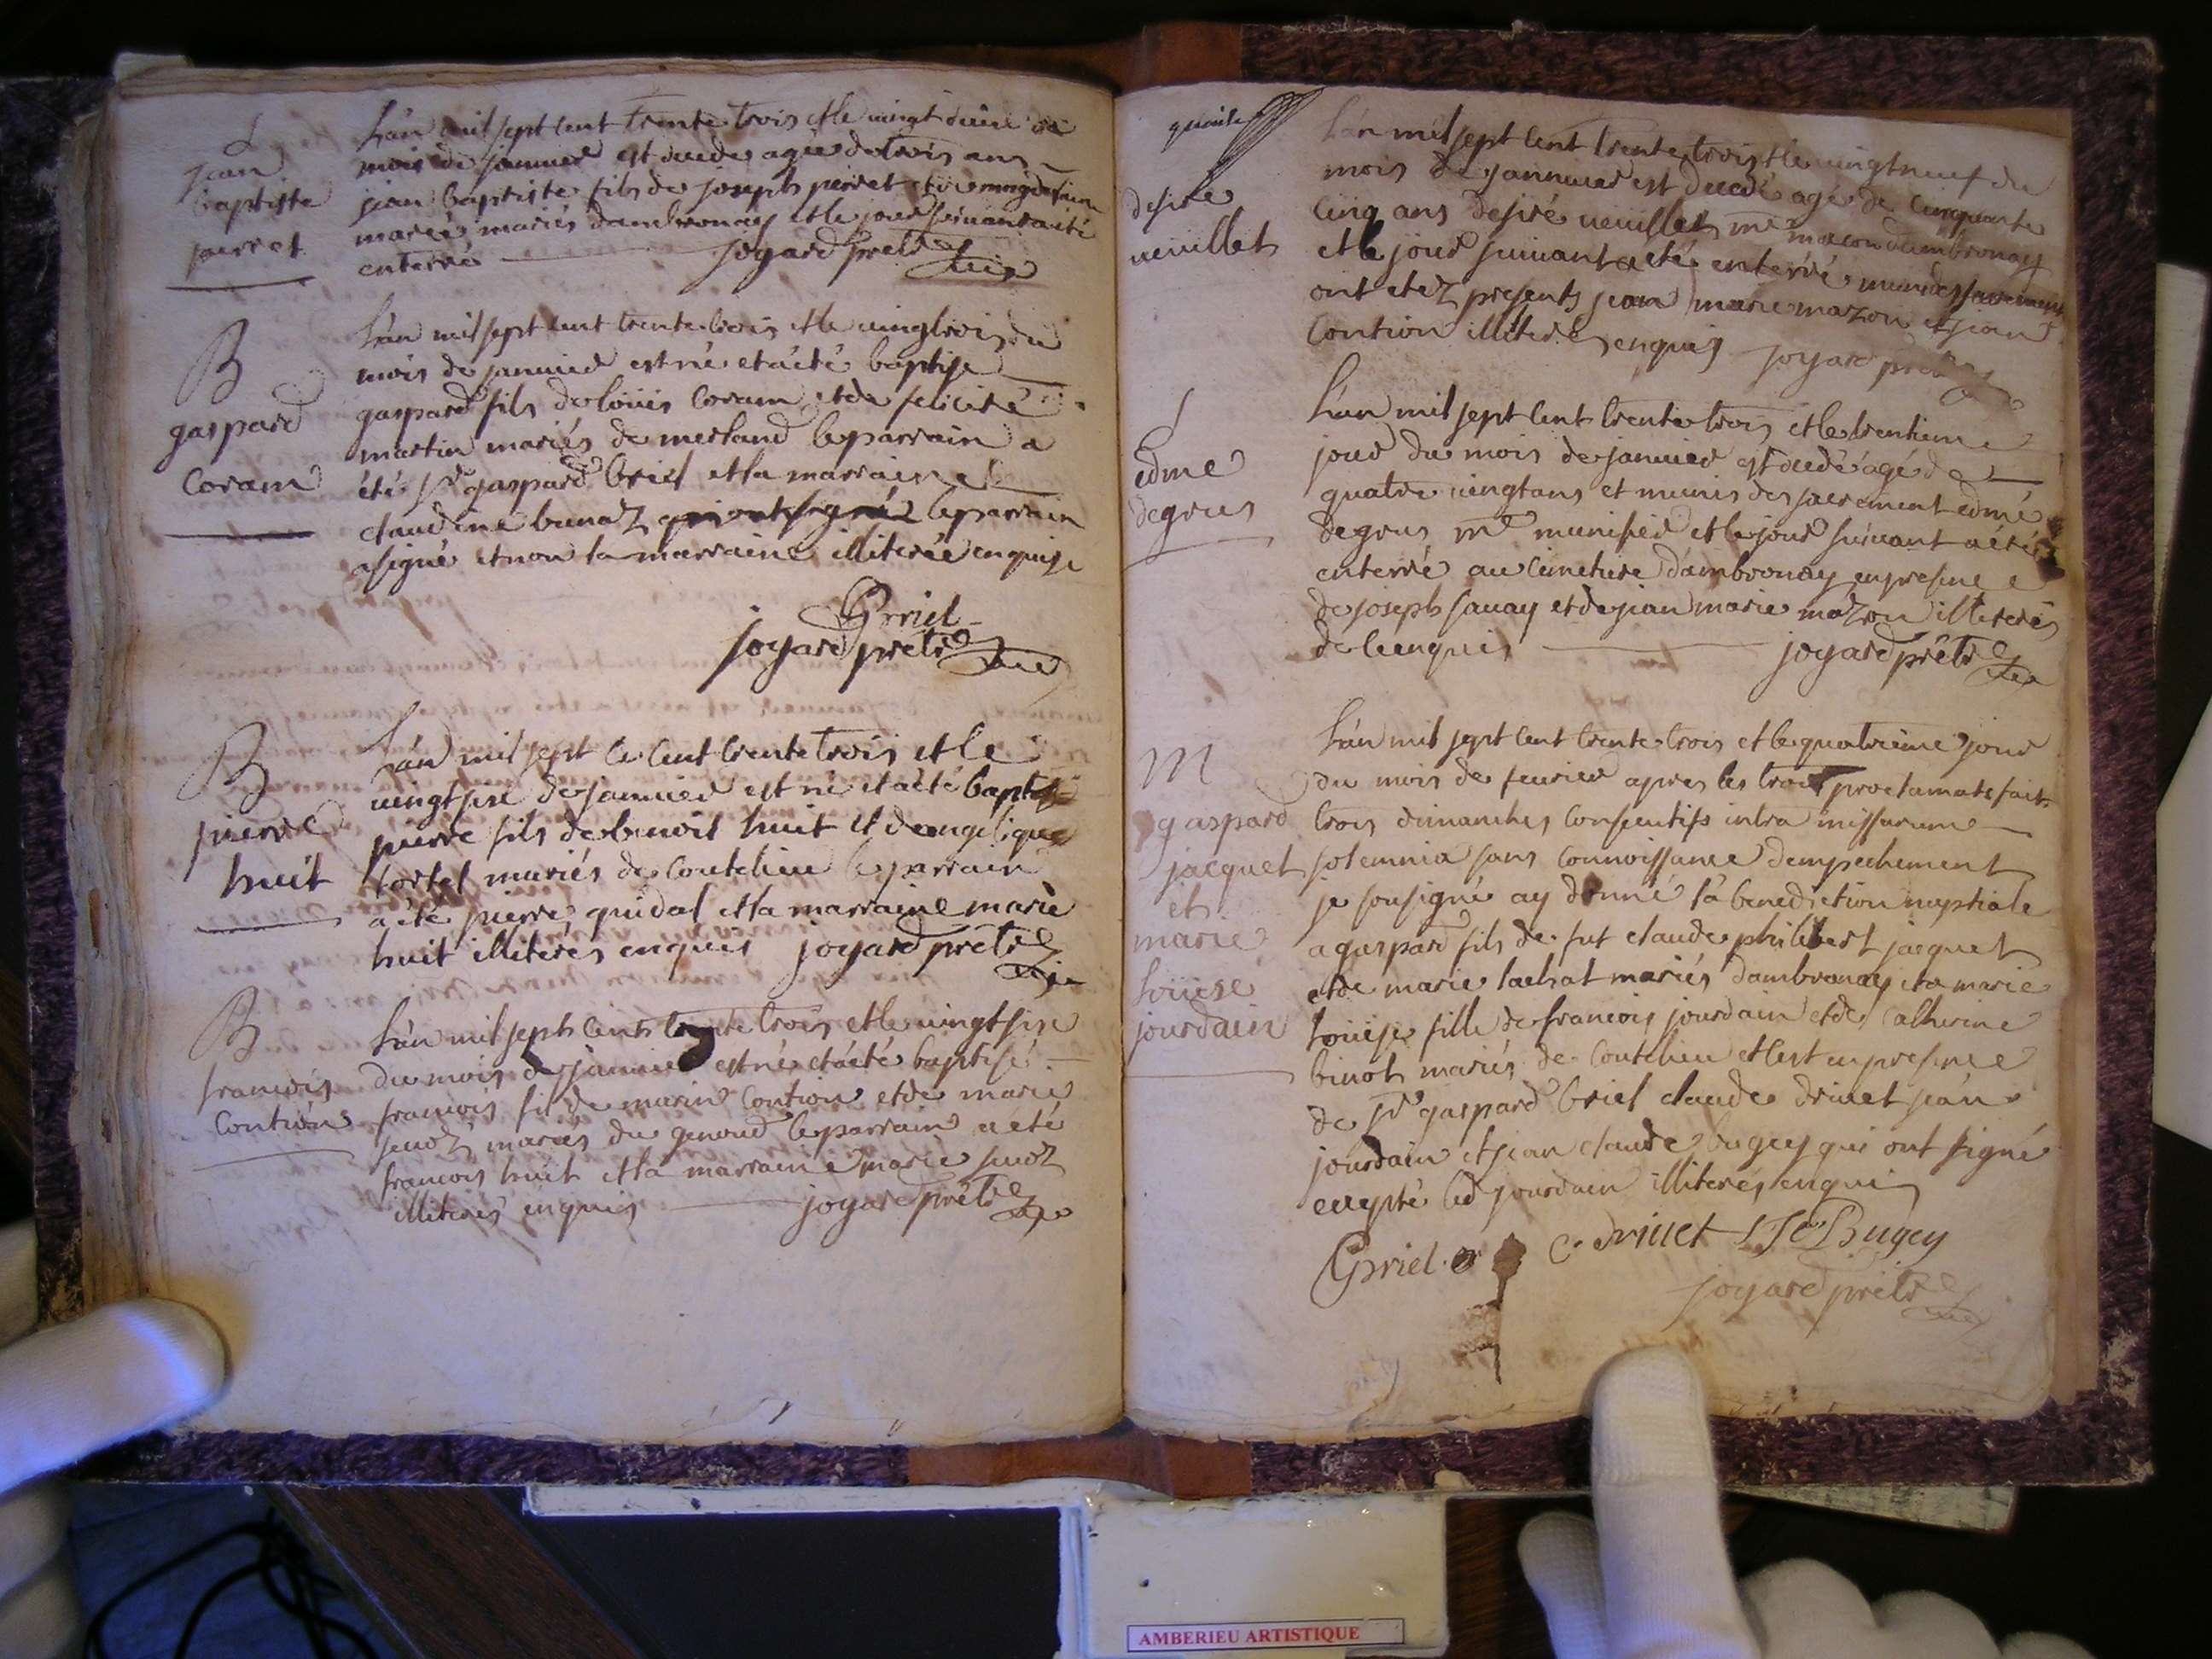 jean
baptiste
perret
L'an mil sept cent trente trois et le vingt
mois de janvier est decede agée de trois ans
jean baptiste fils de joseph perret et
mariés dambronay et le jour suivant a été
enterré joyard pretre
B
gaspard
Coram
L'an mil sept cent trente trois et le vingt trois du
mois de janvier est né et a été baptisé
gaspard fils de loüis Coram et de felicité
martin mariés de merland le parrain a
été Sr gaspard briel et la marraine
claudine bunaz qui ont signéz le parrain
a signé et non la marraine illiterée enquise
Gbriel
joyard pretre
B
pierre
huit
L'an mil sept ce cent trente trois et le
vingt six de janvier est né et a été baptisé
pierre fils de benoit huit et d'angelique
tortel mariés de Coutelieu le parrain
a été pierre quidal et la marraine marie
huit illiterés enquis joyard pretre
B
francois
Contion
L'an mil sept cents trente trois et le vingt six
du mois de janvier est né et a été baptisé
francois fil de marin Contion et de marie
mariés du genoud le parrain a été
francois huit et la marraine marie
illiterés enquis joyard prêtre
desiré
veuillet
L'an mil sept cent trente trois et le vingt neuf du
mois de janvier est decedé agé de cinquante
cinq ans desiré veuillet me macon dambronay
et le jour suivant a eté enterré muni des sacrements
ont etez presents jean marie mazon et jean
Contion illiterés enquis joyard pretre
edme
degrus
L'an mil sept cent trente trois et le trentieme
jour du mois de janvier est decedé agé de
quatre vingt ans et munis des sacrement edmé
degrus me munisier et le jour suivant a été
enterré au cimetiere d'ambronay en presence
de joseph savay et de jean marie mazon illiterés
de ce enquis joyard prêtre
M
gaspard
jacquet
et
marie
loüise
jourdain
L'an mil sept cent trente trois et le quatrieme jour
du mois de fevrier apres les trois proclamats fait
trois dimanches consecutifs intra missarum
solemnia sans connoissance dempechement
je sousigné ay donné la benediction nuptiale
a gaspard fils de fut claude philibert jacquet
et de marie lachat mariés dambronay et a marie
loüise fille de francois jourdain et de Catherine
binot mariés de Coutelieu et cest en presence
de Sr gaspard briel claude drivet jean
jourdain et jean claude bugey qui ont signé
excepté led jourdain illiterés enquis
Gbriel C. drivet JC Bugey
joyard prêtre
AMBERIEU ARTISTIQUE